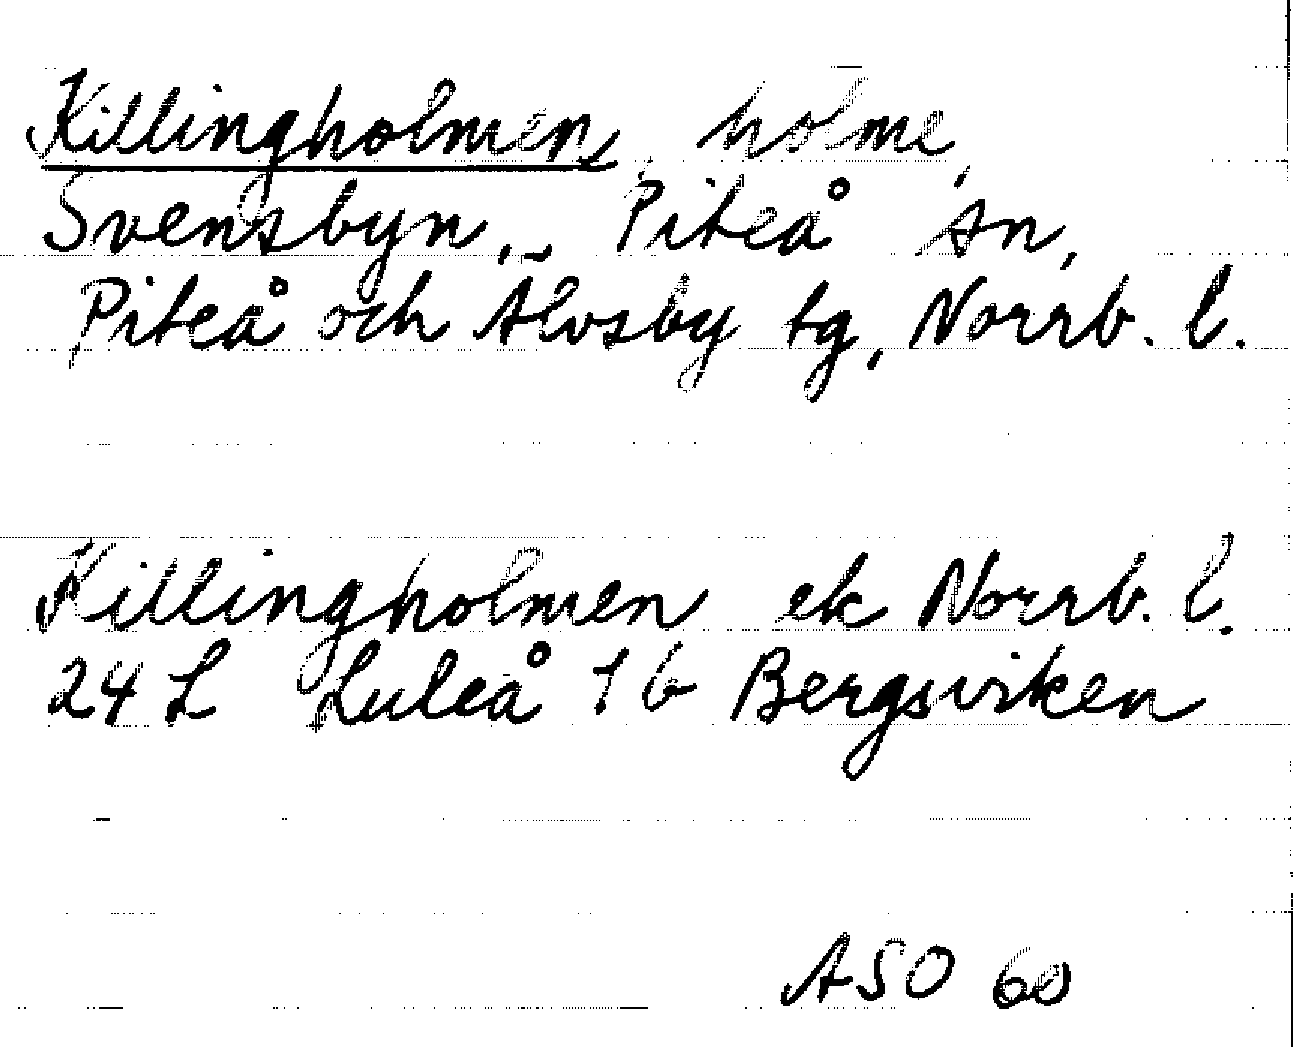 Killingholmen, holme,
Svensbyn, Piteå sn,
Piteå och Älvsby tg, Norrb. l.
Killingholmen ek Norrb. l.
24 L Luleå 1 b Bergsviken
ASO 60